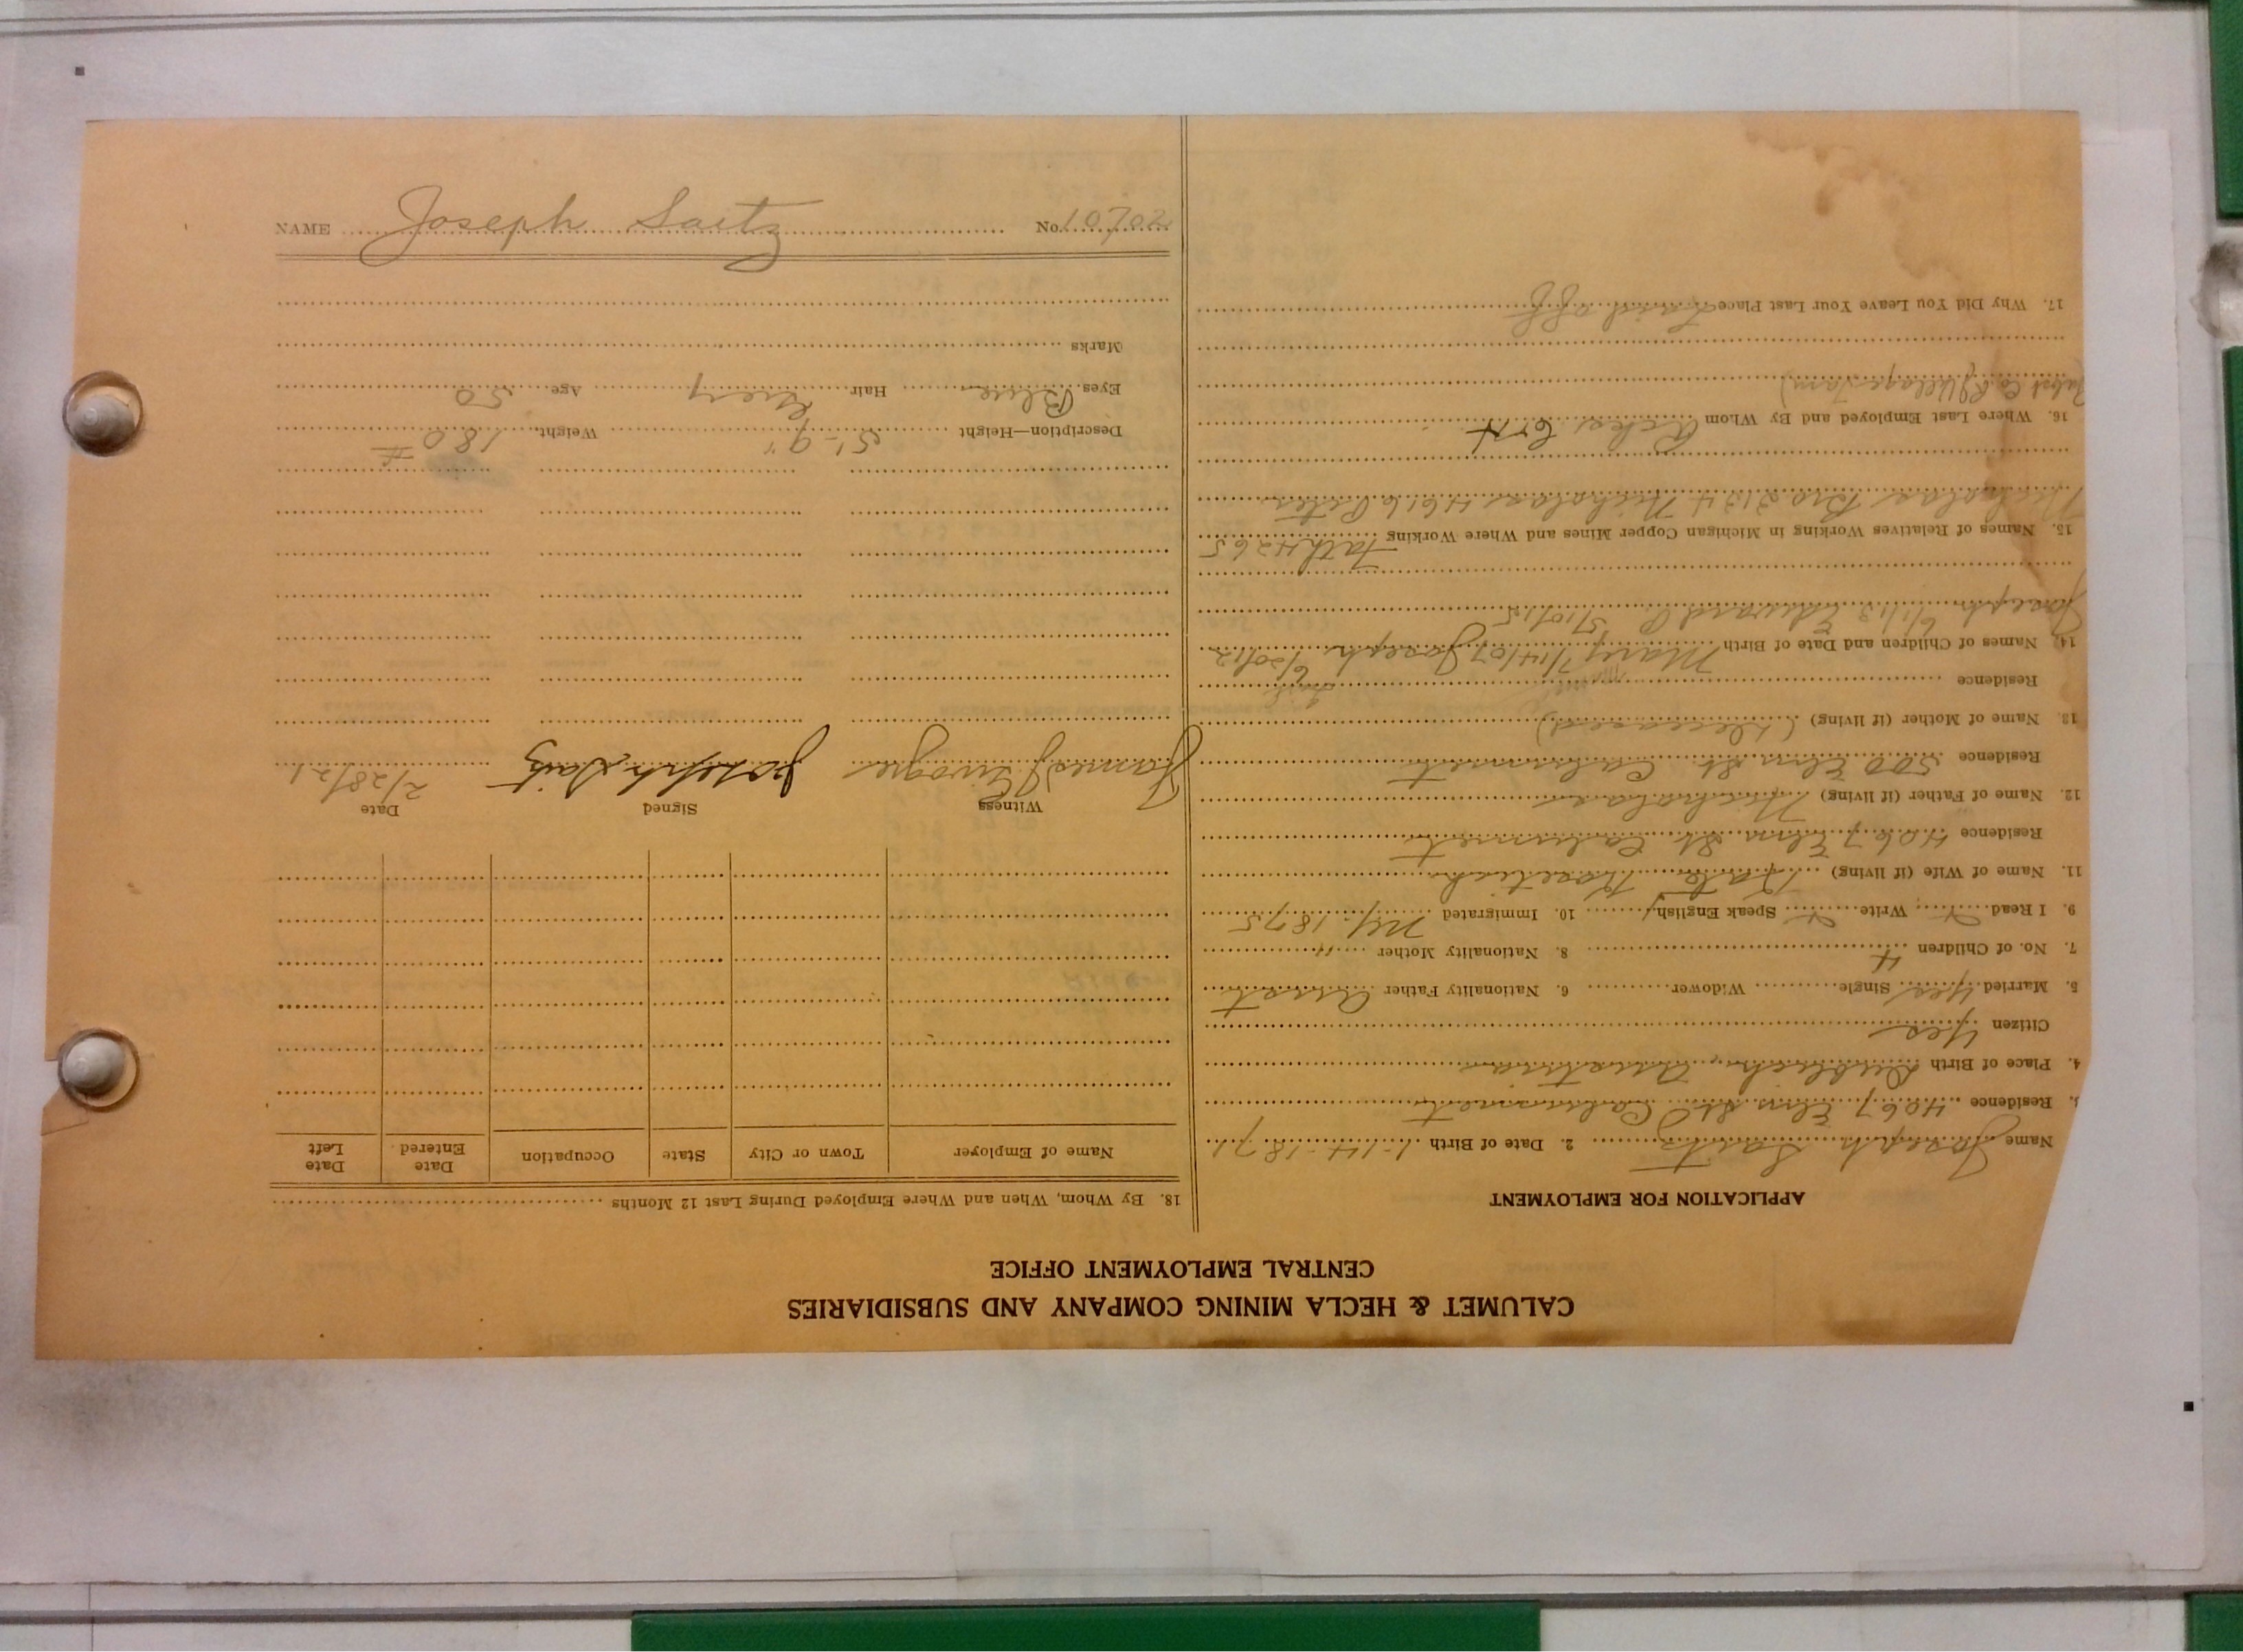 CALUMET & HECLA MINING COMPANY AND SUBSIDIARIES
CENTRAL EMPLOYMENT OFFICE
APPLICATION FOR EMPLOYMENT
Name Joseph Saitz 2. Date of Birth 1-14-1871
3. Residence 4067 Elm St Calumet
4. Place of Birth Austria
Citizen Yes
5. Married Yes Single Widower 6. Nationality Father Aust
7. No. of Children 4 8. Nationality Mother "
9. I Read Write Speak English 10. Immigrated NY. 1875
11. Name of Wife (if living) Kate
Residence 4067 Elm St. Calumet
12. Name of Father (if living) Nicholas
Residence 500 Elm St. Calumet
13. Name of Mother (if living) (Deceased)
Residence
14. Names of Children and Date of Birth Mary 7/14/07 Joseph 6/20/12
Joseph 6/1/13 Edward P 5/10/15
15. Names of Relatives Working in Michigan Copper Mines and Where Working Fath 4265
Nicholas Bro 2134 Nicholas 4616 Peter
16. Where Last Employed and By Whom
17. Why Did You Leave Your Last Place Laid off
18. By Whom, When and Where Employed During Last 12 Months
Name of Employer Town or City State Occupation Date Entered Date Left
Witness Signed Date
James Joseph Saitz 2/28/21
Description—Height 5'-9" Weight 180 #
Eyes Blue Hair Grey Age 50
Marks
NAME Joseph Saitz No. 10702